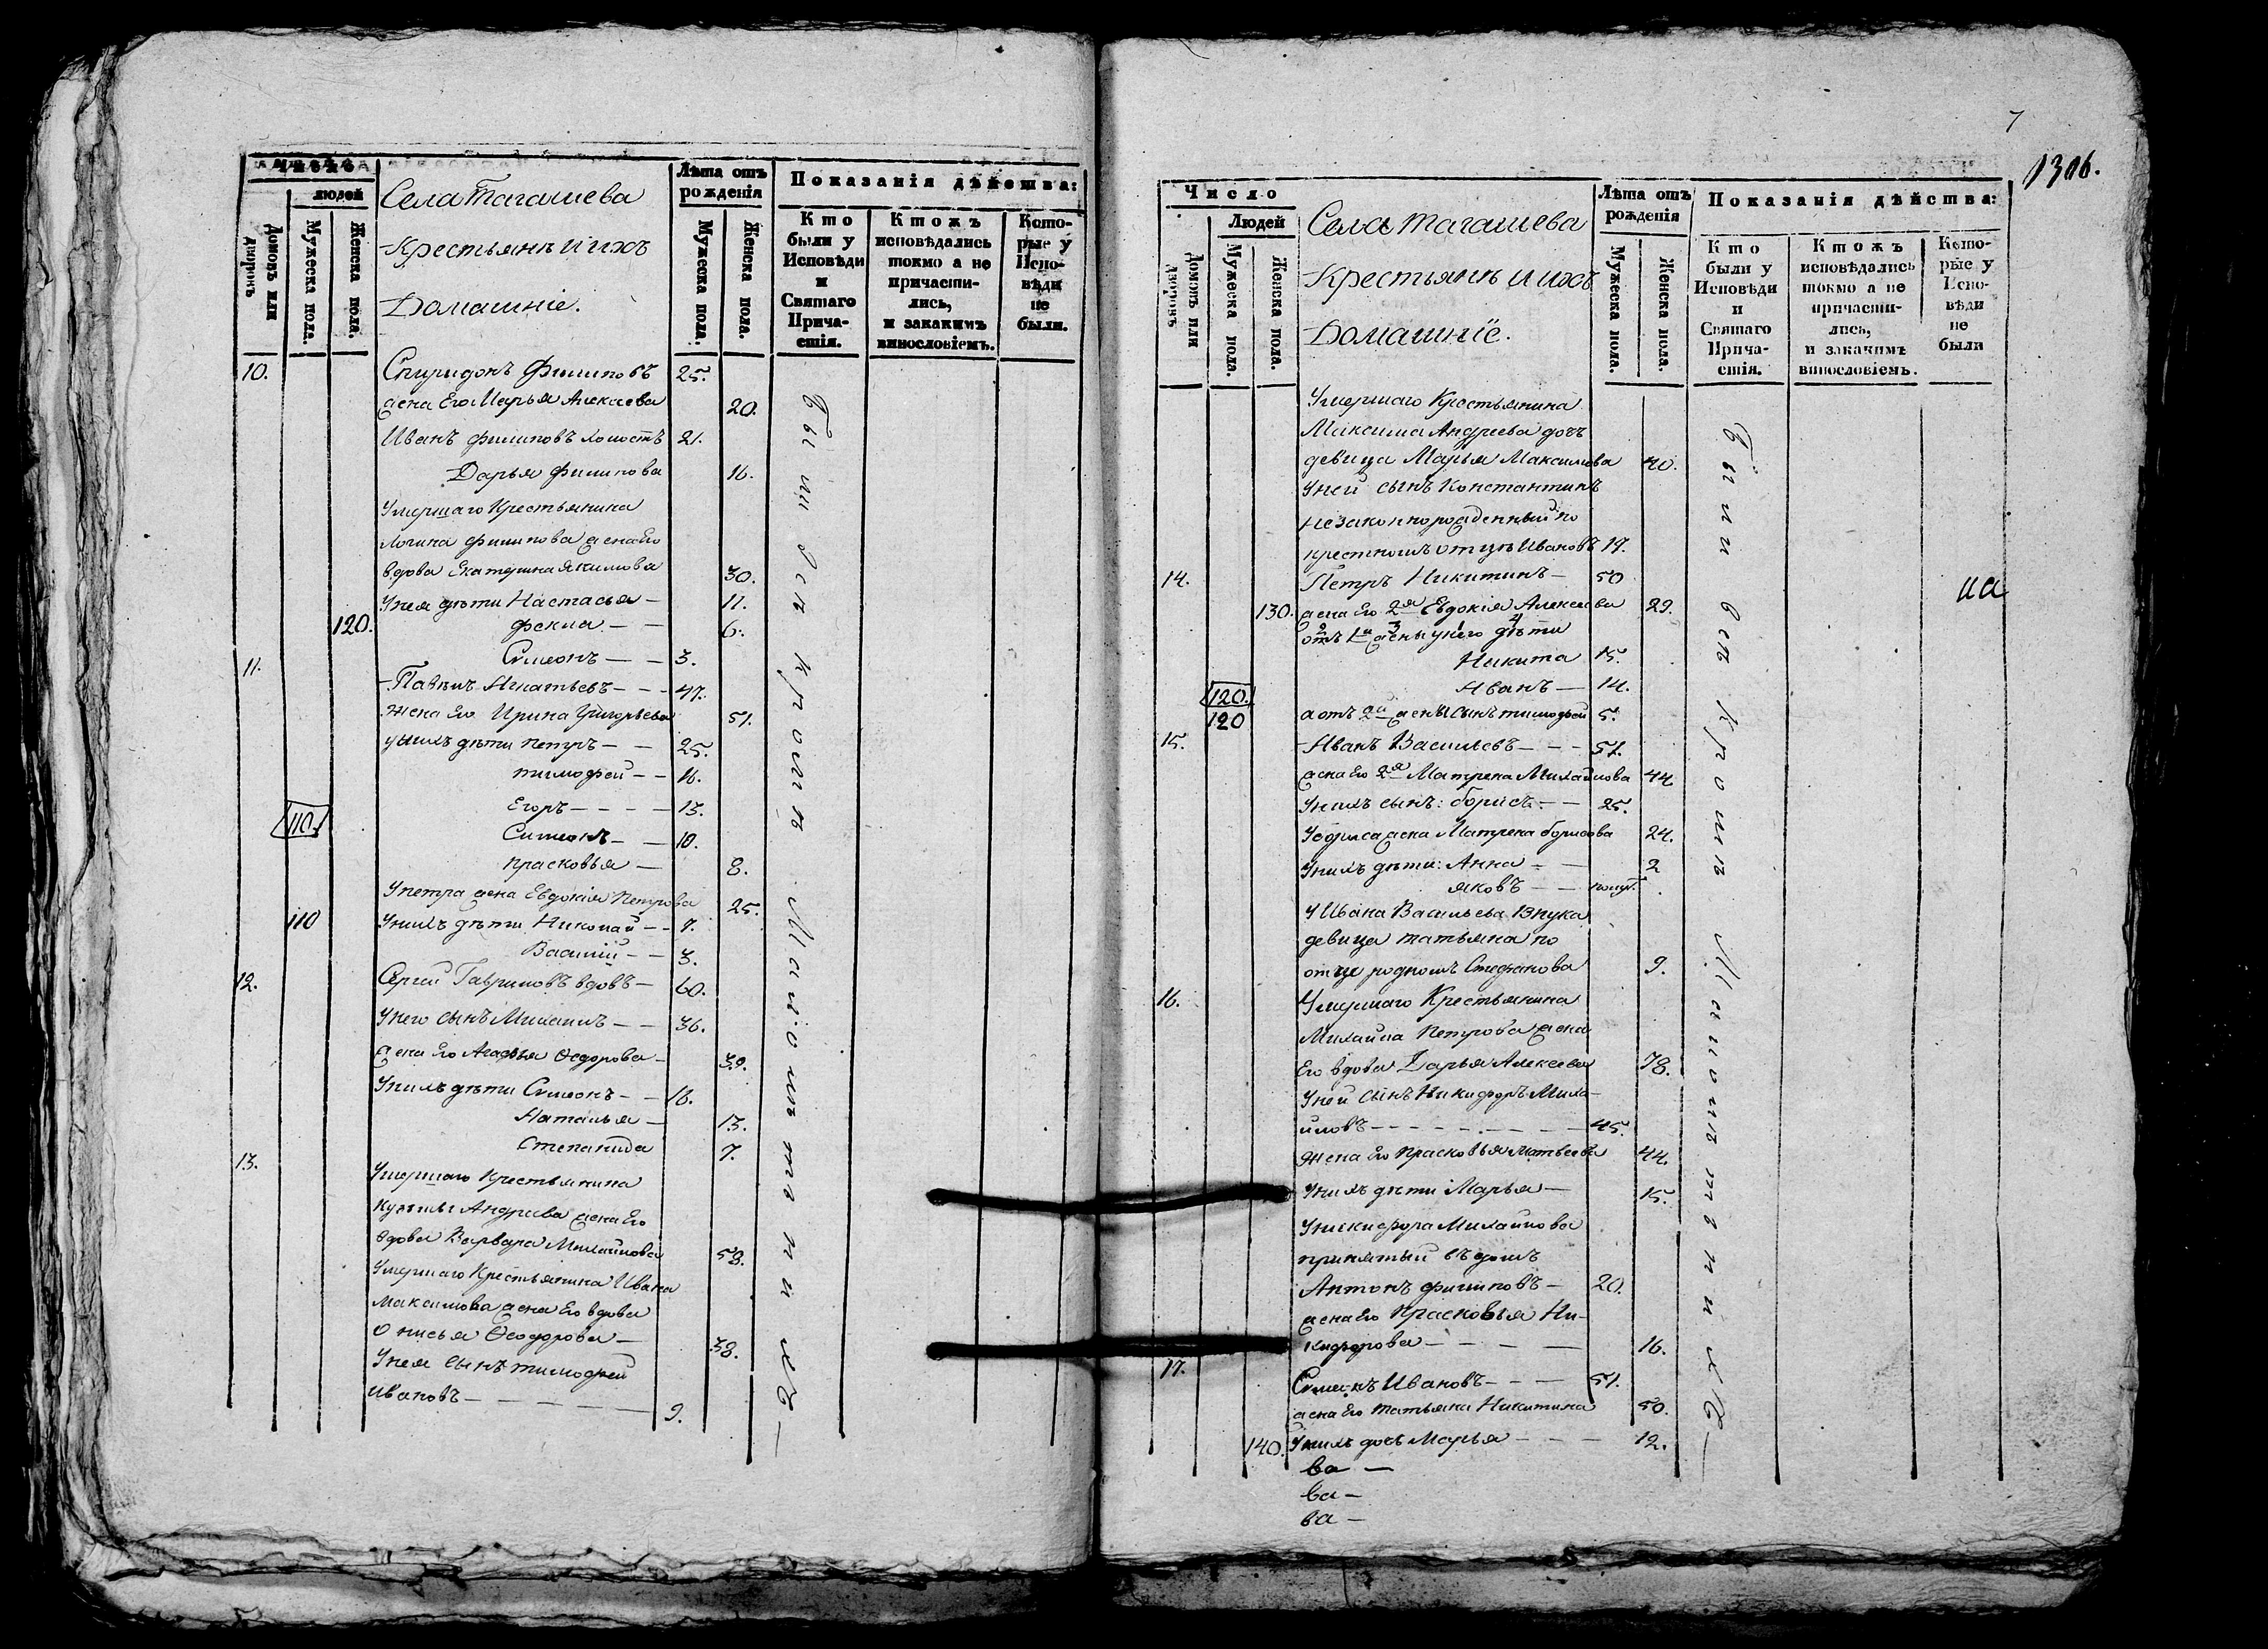 Число
людей
Домовъ или дворовъ
Мужеска пола.
Женска пола.
Села Тагашева
Крестьянъ и ихъ
Домашніе.
Лѣта отъ рожденія
Мужеска пола.
Женска пола.
Показанія дѣйства:
Кто были у Исповѣди и Святаго Причастія.
Ктожъ исповѣдались токмо а не причастились, и закакимъ винословіемъ.
Которые у Исповѣди не были.
10. Спиридонъ Филиповъ 25.
жена Его Марья Алексева 20.
Иванъ филиповъ холостъ 21.
Дарья филипова 16.
Умершаго Крестьянина
Логина филипова жена Его
вдова Екатерина Якимова 30.
Унея дѣти Настасья — 11.
120. фекла — — 6.
Симеонъ — — 3.
11. Павелъ Игнатьевъ — — — 47.
жена Его Ирина Григорьева 51.
унихъ дѣти петръ — — 25.
тимофей — — 16.
Егоръ — — — — 13.
110. Симеонъ — — 10.
прасковья — 8.
Упетра жена Евдокія Петрова 25.
110 Унихъ дѣти Николай — — 7.
Василій — — 3.
12. Сергей Гавриловъ вдовъ — 60.
Унего сынъ Михаилъ — — 36.
жена Его Агафья Ѳедорова — 39.
Унихъ дѣти Симеонъ — — 16.
Наталья — 13.
Степанида 7.
13. Умершаго Крестьянина
Кузьмы Андреева жена Его
вдова Варвара Михайлова 58.
Умершаго Крестьянина Ивана
Максимова жена Его вдова
Онисья Ѳеодорова — 38.
Унея сынъ тимофей
Ивановъ — — — — — 9.
Были вси у Исповѣди
7
1306.
Число
Людей
Домовъ или дворовъ
Мужеска пола.
Женска пола.
Села Тагашева
Крестьянъ и ихъ
Домашніе.
Лѣта отъ рожденія
Мужеска пола.
Женска пола.
Показанія дѣйства:
Кто были у Исповѣди и Святаго Причастія.
Ктожъ исповѣдались токмо а не причастились, и закакимъ винословіемъ.
Которые у Исповѣди не были
Умершаго Крестьянина
Максима Андреева дочь
девица Марья Максимова 40.
Уней сынъ Константинъ
незаконнорожденный по
крестномъ отцѣ Ивановъ 19.
14. Петръ Никитинъ — 50
130. жена Его 2я Евдокія Алексеева 29.
отъ 1й жены унего дѣти
Никита 15.
120. Иванъ — 14.
120 а отъ 2й жены сынъ тимофей 5.
15. Иванъ Васильевъ — — — 51.
жена Его 2я Матрена Михайлова 44
Унихъ сынъ: борисъ — — 25.
Уборисажена Матрена борисова 24.
Унихъ дѣти: Анна — — 2
яковъ — — полуг.
У Ивана Васильева внука
девица татьяна по
отце родномъ Стефанова 9.
16. Умершаго Крестьянина
Михайла Петрова жена
Его вдова Дарья Алексеева 78.
Уней сынъ Никифоръ Миха-
йловъ — — — — — — 45.
жена Его прасковья матвеева 44.
Унихъ дѣти Марья — 15.
Уникифора Михайлова
принятый въ домъ
Антонъ филиповъ — 20.
жена Его прасковья Ни-
кифорова — — — — 16.
17. Симеонъ Ивановъ — — — 51.
жена Его татьяна Никитина 50.
140. Унихъ дочь Марья — — — 12.
ва —
ва —
ва —